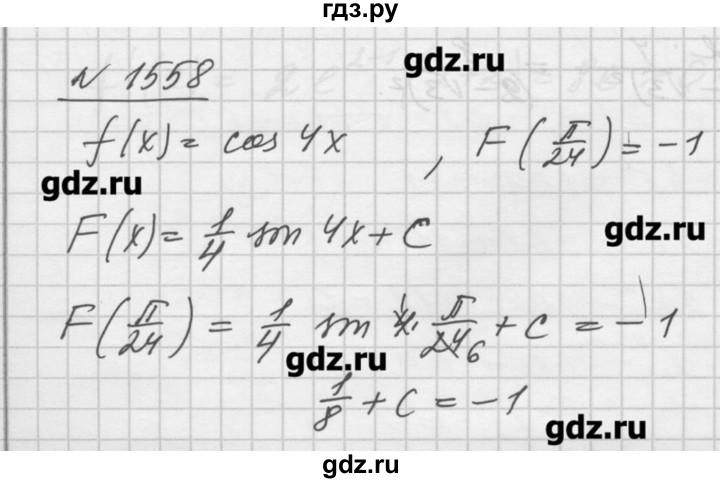 гдз.ру
gdz.ru
N 1558
f(x) = cos 4x , F(π/24) = -1
gdz.ru
F(x) = 1/4 sin 4x + C
gdz.ru
F(π/24) = 1/4 sin 4 · π/24 6 + C = -1
gdz.ru
1/8 + C = -1
gdz.ru
gdz.ru